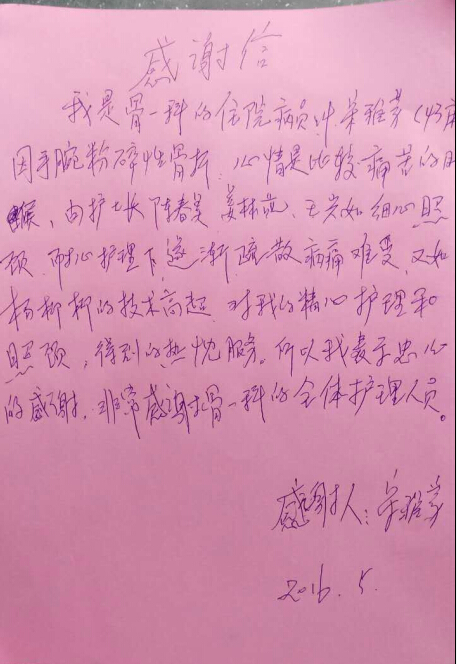 感谢信
我是骨一科的住院病员叶荣雅芬（43床
因手腕粉碎性骨折，心情是比较痛苦的时
候，由护士长陈春昊 姜林苡、王岩如细心照
顾、耐心护理下逐渐疏散病痛难受，又如
杨柳柳的技术高超，对我的精心护理和
照顾，得到的热忱服务。所以我表示忠心
的感谢，非常感谢骨一科的全体护理人员。
感谢人：荣雅芬
2016.5.